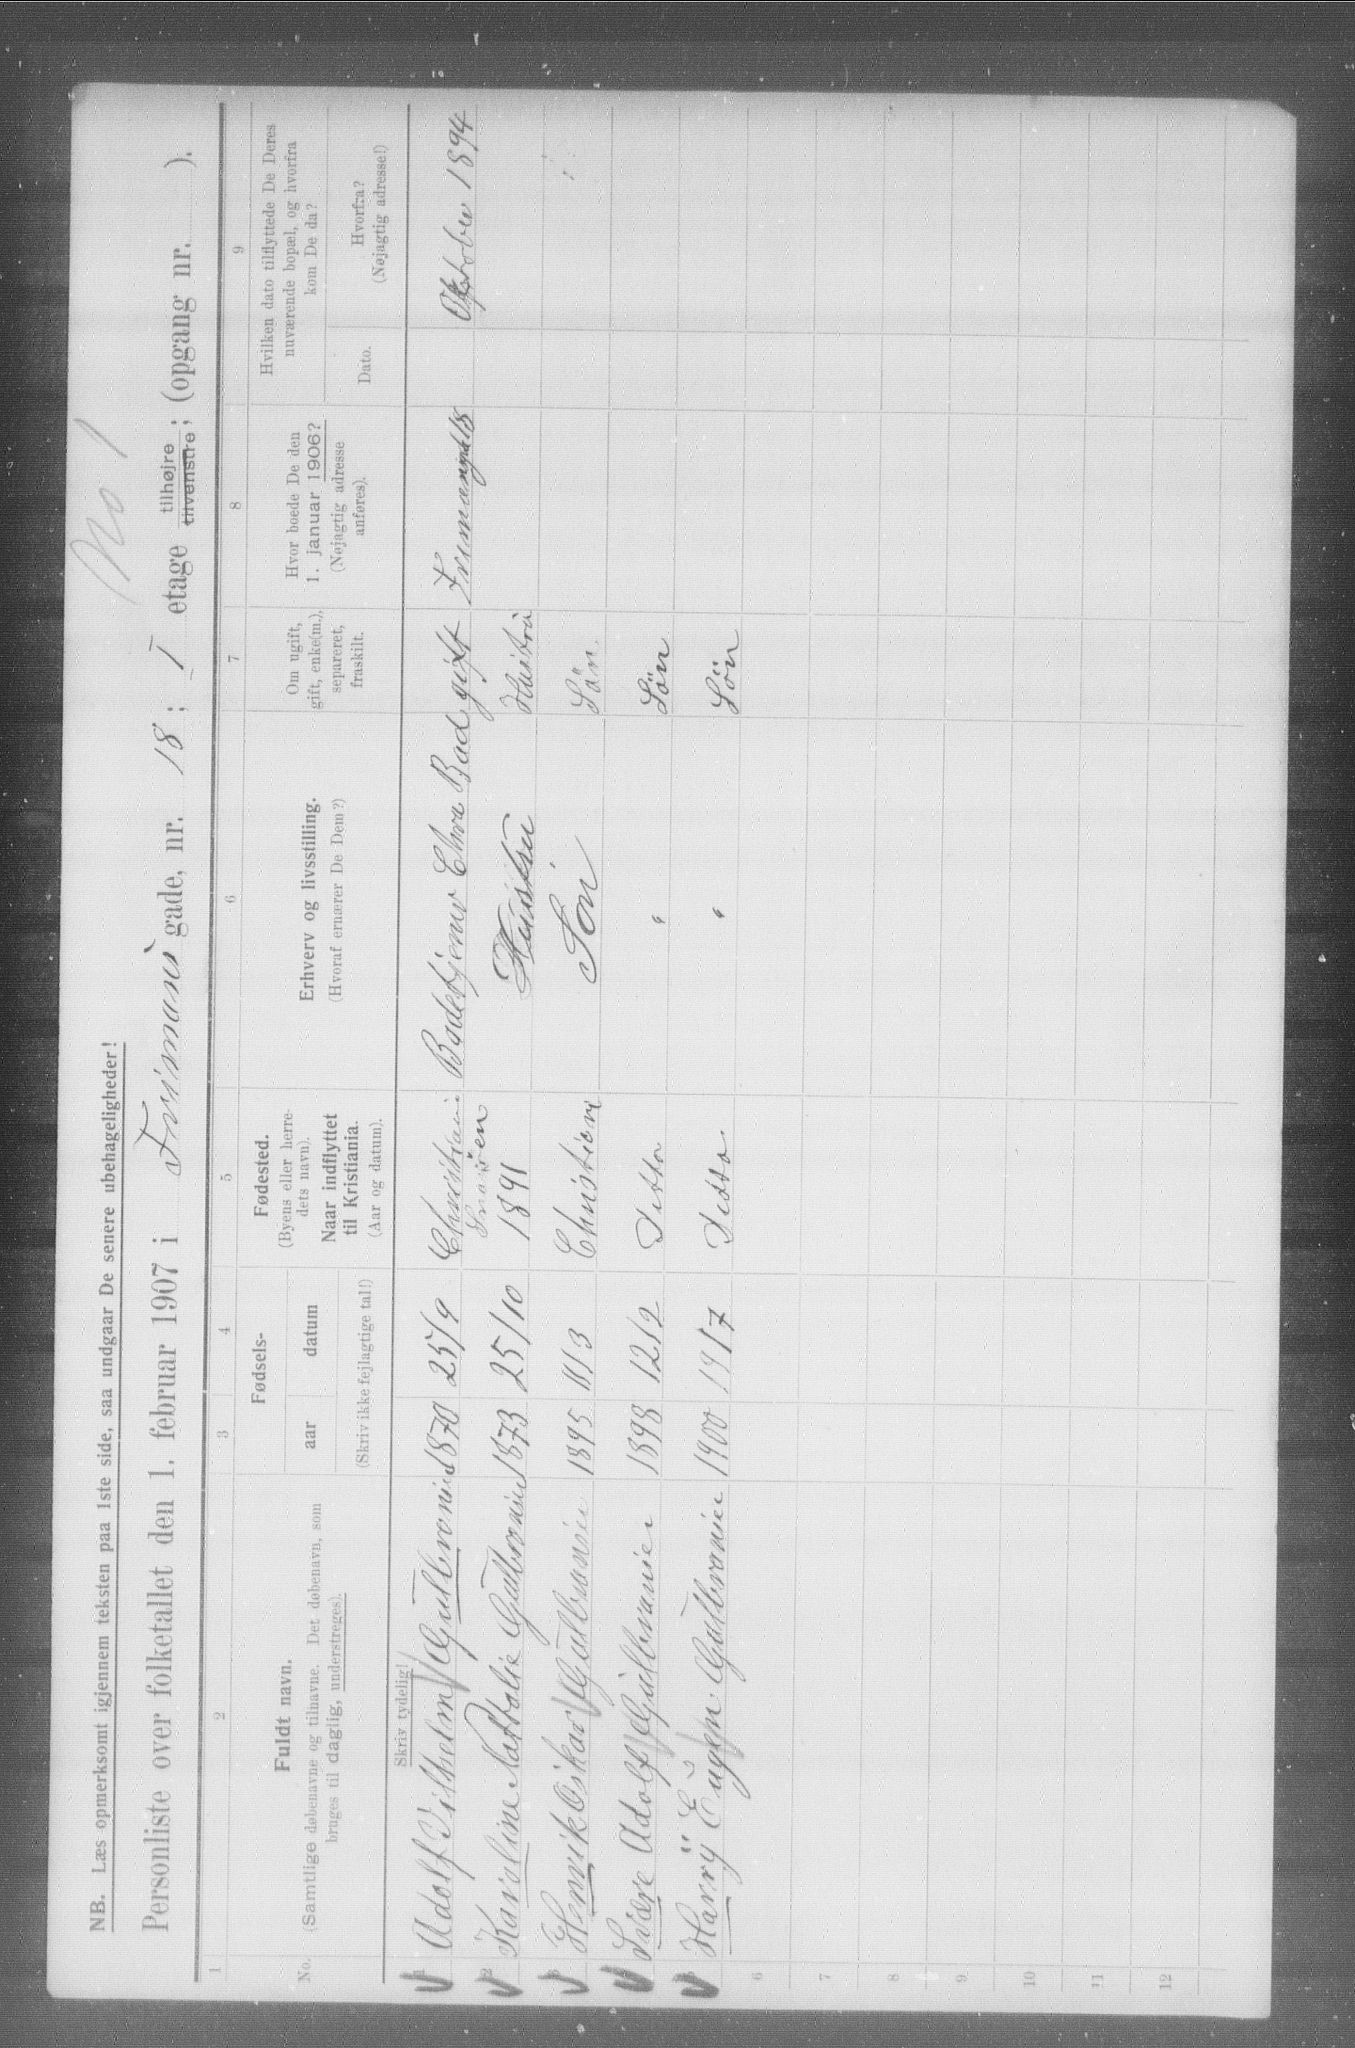 No 1
NB. Læs opmerksomt igjennem teksten paa 1ste side, saa undgaar De senere ubehageligheder!
Personliste over folketallet den 1. februar 1907 i Frimans gade, nr. 18; I etage tilhøjre tilvenstre; (opgang nr. ).
1 2 3 4 5 6 7 8 9
No.
Fuldt navn.
(Samtlige døbenavne og tilnavne. Det døbenavn, som
bruges til daglig, understreges).
Fødsels-
aar datum
(Skriv ikke fejlagtige tal!)
Fødested.
(Byens eller herre-
dets navn).
Naar indflyttet
til Kristiania.
(Aar og datum).
Erhverv og livsstilling.
(Hvoraf ernærer De Dem?)
Om ugift,
gift, enke(m.),
separeret,
fraskilt.
Hvor boede De den
1. januar 1906?
(Nøjagtig adresse
anføres).
Hvilken dato tilflyttede De Deres
nuværende bopæl, og hvorfra
kom De da?
Dato.
Hvorfra?
(Nøjagtig adresse!)
Skriv tydelig!
1 Adolf Vilhelm Gulbransen 1870 25/9 Christiani Badetjener Chra Bad gift Frimansgt 18 Oktober 1894
2 Karoline Nathalie Gulbransen 1873 25/10 1891 Hustru Hustru
3 Henrik Oskar Gulbransen 1895 11/3 Christiani Søn Søn
4 Svære Adolf Gulbransen 1898 12/2 Ditto " Søn
5 Harrÿ Eugen Gulbransen 1900 19/7 Ditto. " Søn
6
7
8
9
10
11
12